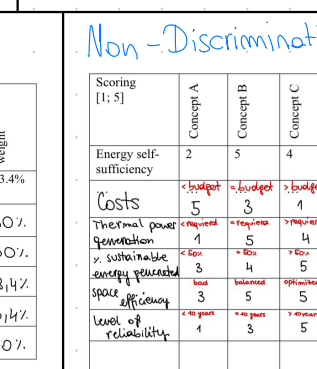 Non-Discriminati
weight
3.4%
0%.
0%.
3,4%
,4%
0%.
Scoring
[1; 5]
Concept A
Concept B
Concept C
Energy self-
sufficiency
2
5
4
Costs
< budget
= budget
> budge
5
3
1
Thermal power
generation
< required
= required
> require
1
5
4
%. sustainable
energy generated
< 50%
= 50%
> 50%
3
4
5
space
efficiency
bad
balanced
optimized
3
5
5
level of
reliability
< 10 years
= 10 years
> 10 year
1
3
5